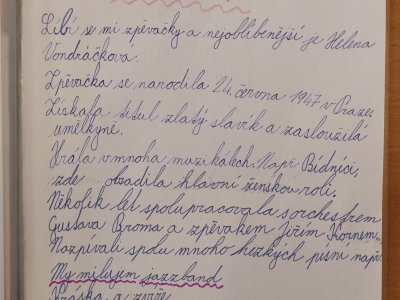 Líbí se mi zpěvačky a nejoblíbenější je Helena
Vondráčková.
Zpěvačka se narodila 24. června 1947 v Praze.
Získala titul zlatý slavík a zasloužilá
umělkyně.
Hrála v mnoha muzikálech. Např Bídníci,
zde obadila hlavní ženskou roli.
Několik let spolupracovala s orchestrem
Gustava Broma a zpěvákem Jiřím Kornem.
Nazpívali spolu mnoho hezkých písní např.
My milujem jazzband
Kráska a zvíře